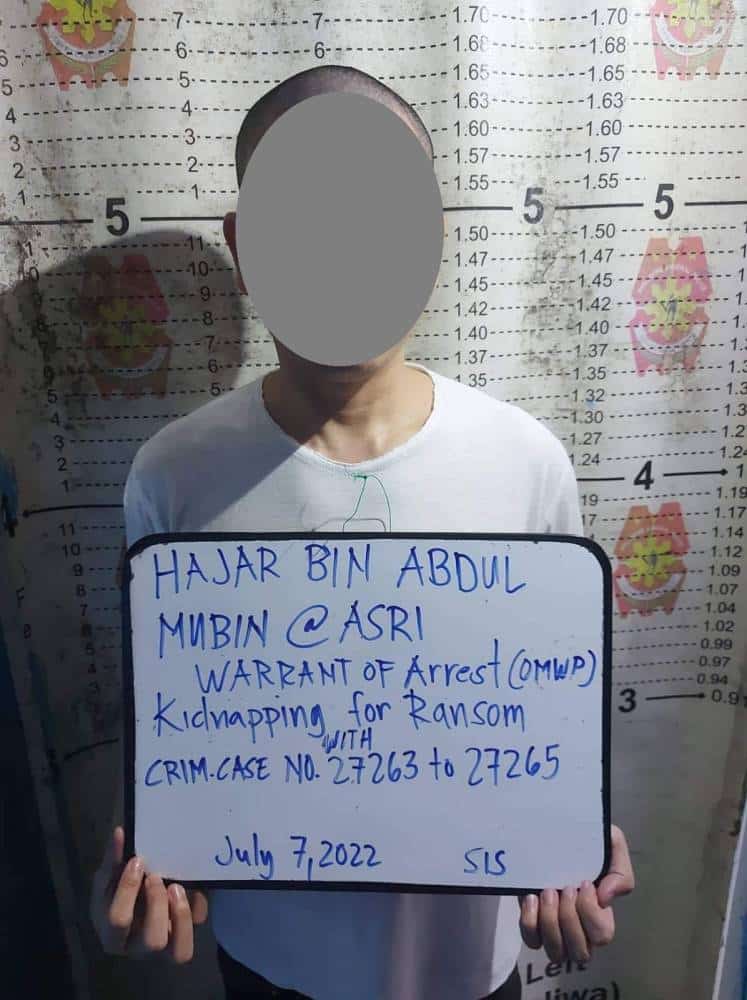 7 7 1.70 1.70
6 6 1.68 1.68
5 5 1.65 1.65
4 4 1.63 1.63
3 3 1.60 1.60
2 2 1.57 1.57
1 1 1.55 1.55
5 5 5
11 1.50 1.50
10 1.47 1.47
9 1.45 1.45
8 1.42 1.42
7 1.40 1.40
6 1.37 1.37
5 5 35 1.35
4 1.32
3 1.30
2 1.27
1 1.24
4
HAJAR BIN ABDUL
MUBIN @ ASRI
WARRANT OF Arrest (OMWP)
Kidnapping for Ransom
WITH
CRIM.CASE NO. 27263 to 27265
July 7, 2022 SIS
11 1.19
10 1.17
9 1.14
8 1.12
7 1.09
1.07
1.04
1.02
0.99
0.97
0.94
3